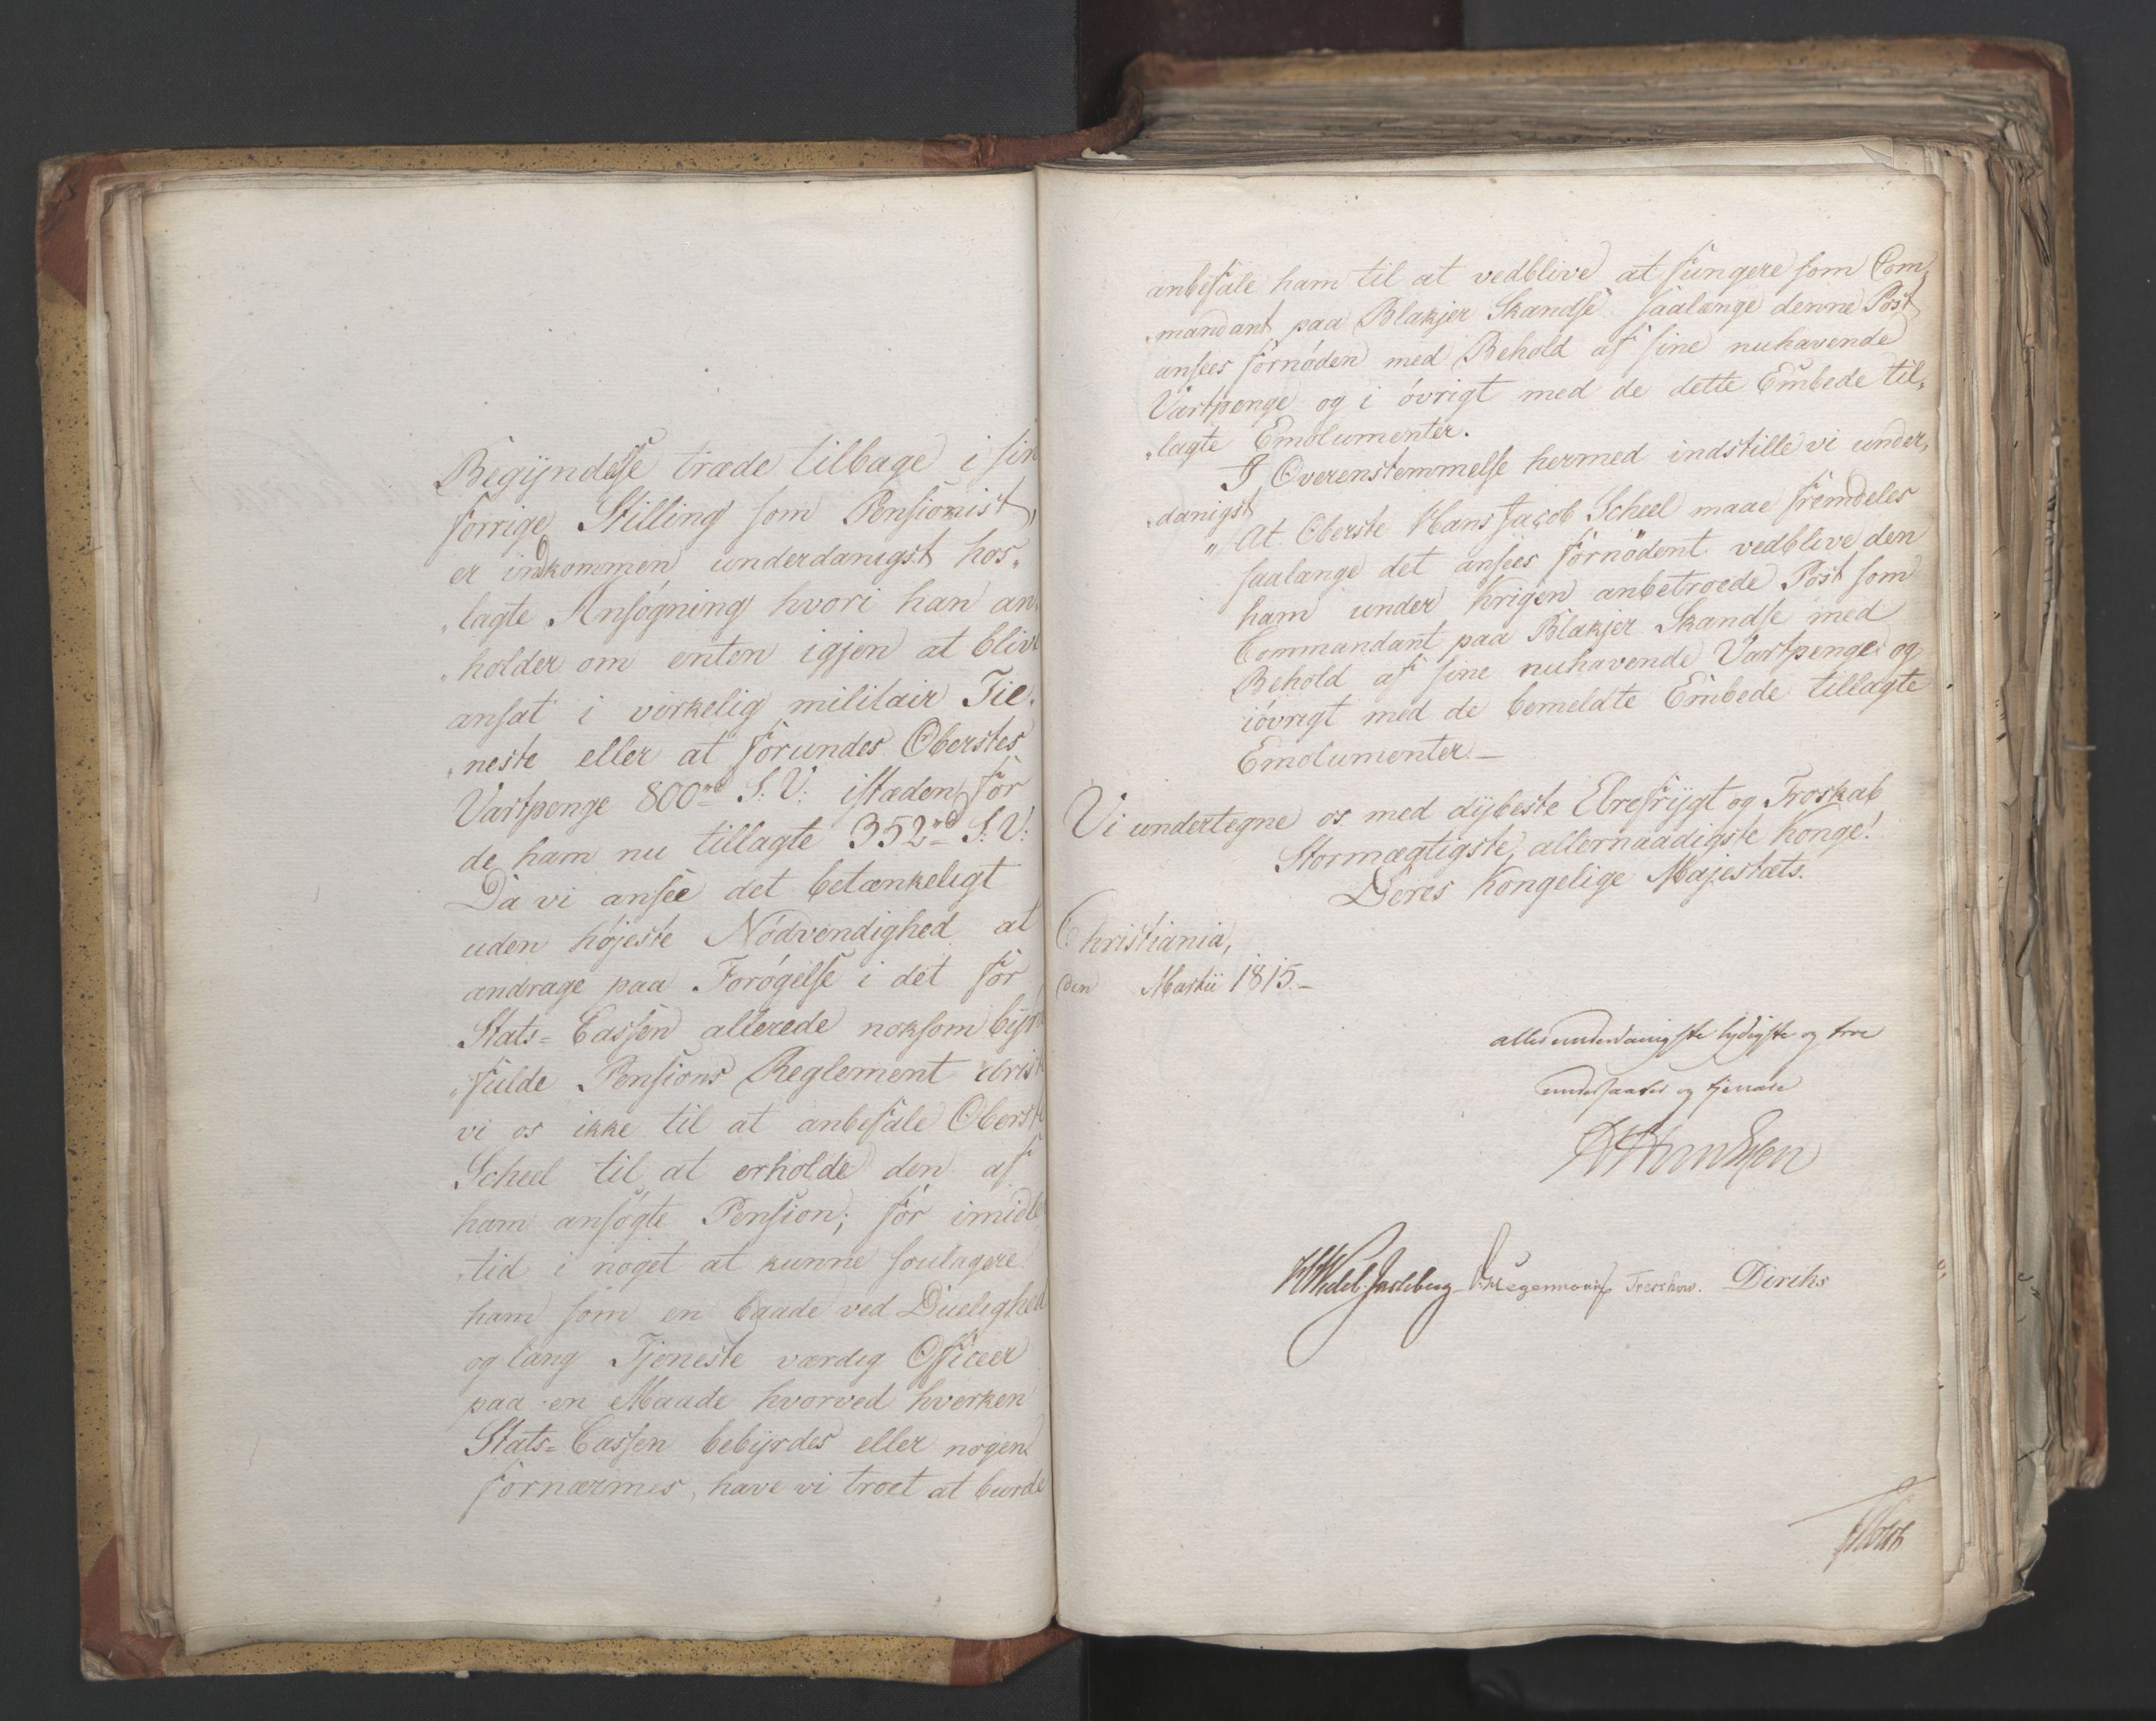 Begyndelse træde tilbage i sin
forrige Stilling som Pensionist,
er indkommen underdanigst hos„
„lagte Ansøgning hvori han an„
„holder om enten igjen at blive
ansat i virkelig militair Tie„
„neste eller at forundes Oberstes
Vartpenge 800 rd S: V: istæden for
de ham nu tillagte 352 rd S: V:
Da vi ansee det betænkeligt
uden højeste Nødvendighed at
andrage paa Forøgelse i det for
Stats=Cassen allerede noksom byr
„fulde Pensions Reglement driste
vi os ikke til at anbefale Oberst
Scheel til at erholde den af
ham ansøgte Pension; for imidle
„tid i noget at kunne soulagere
ham som en baade ved Duelighed
og lang Tjeneste værdig Officer
paa en Maade hvorved hverken
Stats=Cassen bebyrdes eller nogen
fornærmes, have vi troet at burde
anbefale ham til at vedblive at fungere som Com„
„mandant paa Blakjer Skandse saalænge denne Post
ansees fornøden med Behold af sine nuhavende
Vartpenge og i øvrigt med de dette Embede til„
„lagte Emolumenter.
I Overenstemmelse hermed indstille vi under„
„danigst
„At Oberste Hans Jacob Scheel maae fremdeles
saalænge det ansees fornødent vedblive den
ham under Krigen anbetroede Post som
Commandant paa Blakjer Skandse med
Behold af sine nuhavende Vartpenge og
iøvrigt med de bemeldte Embede tillagte
Emolumenter.—
Vi undertegne os med dybeste Ehrefrygt og Troskab
Stormægtigste, allernaadigste Konge!
Deres Kongelige Majestæts.
Christiania,
den Martii 1815.—
allerunderdanigste lydigste og troe
undersaatter og tjenere
Wedel Jarlsberg Hegermann Treschow. Diriks